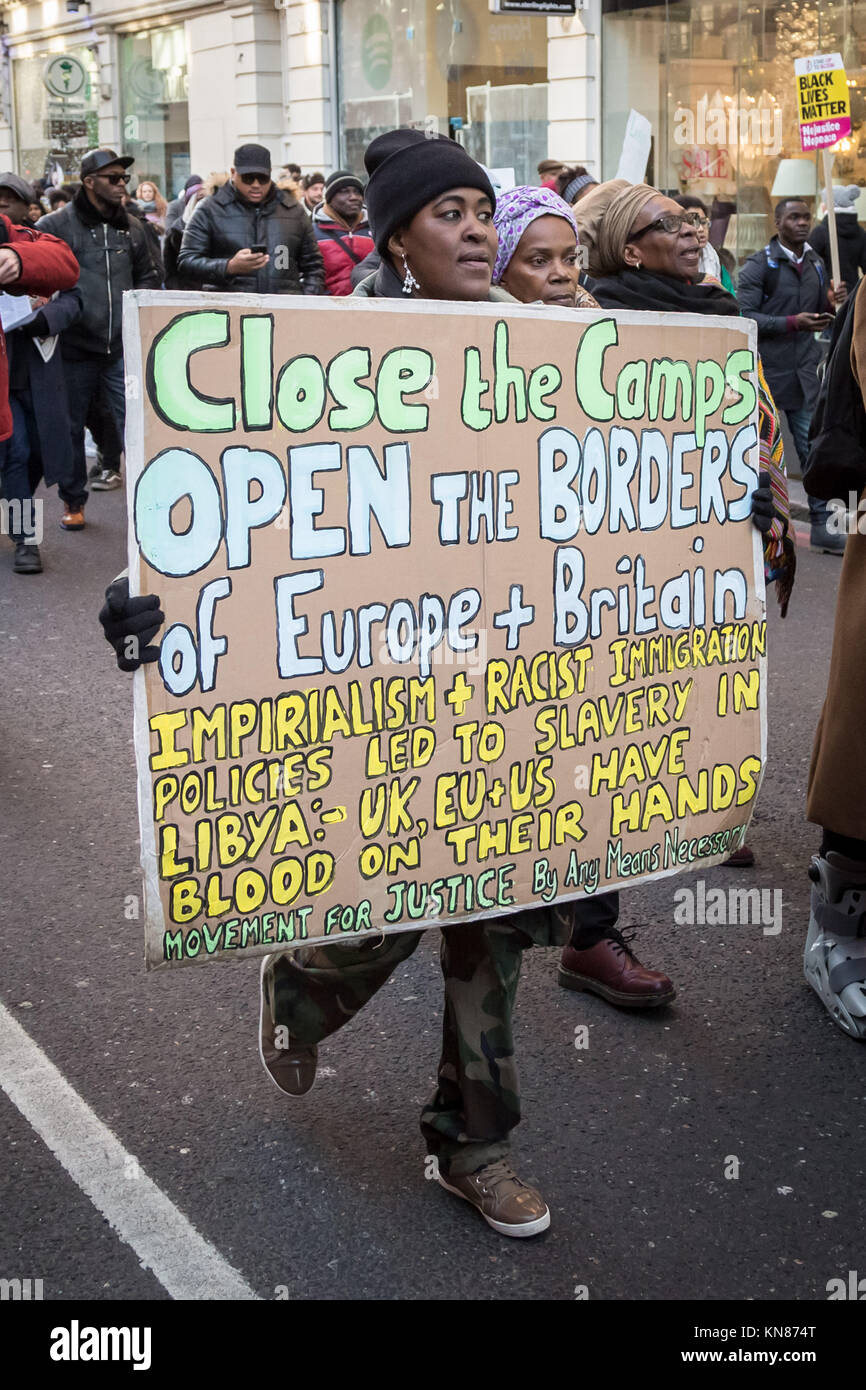 www.sterlinglights.com
STAND UP TO RACISM
BLACK
LIVES
MATTER
No justice
No peace
SALE
Close the Camps
OPEN THE BORDERS
of Europe + Britain
IMPIRIALISM + RACIST IMMIGRATION
POLICIES LED TO SLAVERY IN
LIBYA:- UK, EU+US HAVE
BLOOD ON THEIR HANDS
MOVEMENT FOR JUSTICE By Any Means Necessary
alamy
alamy stock photo
KN874T
www.alamy.com